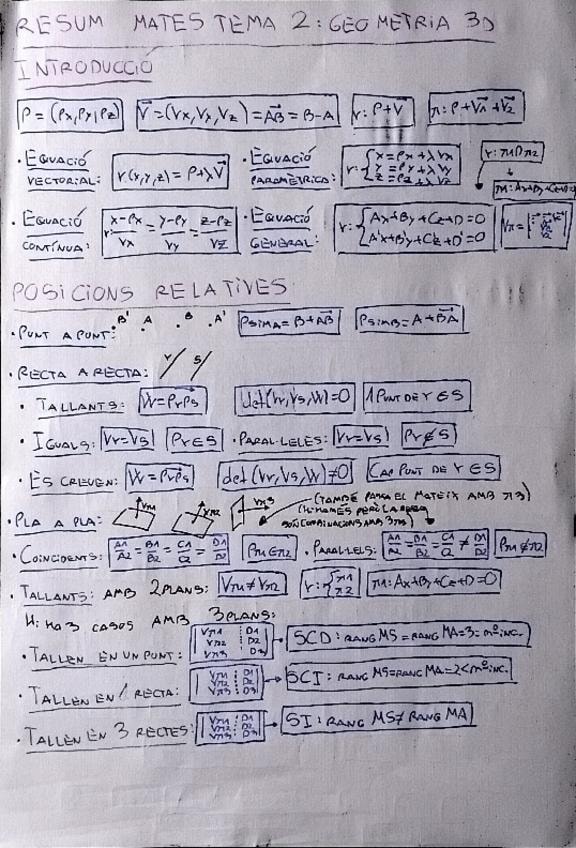 RESUM MATES TEMA 2: GEOMETRIA 3D
INTRODUCCIÓ
P = (Px, Py, Pz) V⃗ = (Vx, Vy, Vz) = AB⃗ = B-A r: P+V⃗ π: P+V1⃗+V2⃗
· EQUACIÓ VECTORIAL: r(x,y,z) = P+λV⃗ · EQUACIÓ PARAMÈTRICA: r: { x=Px+λVx y=Py+λVy z=Pz+λVz
r: π1∩π2
π1: Ax+By+Cz+D=0
· EQUACIÓ CONTÍNUA: r: x-Px/Vx = y-Py/Vy = z-Pz/Vz · EQUACIÓ GENERAL: r: { Ax+By+Cz+D=0 A'x+B'y+C'z+D'=0 Vr=
POSICIONS RELATIVES
· PUNT A PUNT: B' A B A' PsimA = B+AB⃗ PsimB = A+BA⃗
· RECTA A RECTA: r s
· TALLANTS: W=PrPs⃗ det(Vr,Vs,W)=0 1 PUNT DE r ∈ S
· IGUALS: Vr=Vs Pr∈S · PARAL·LELES: Vr=Vs Pr∉S
· ES CREUEN: W=PrPs⃗ det(Vr,Vs,W)≠0 CAP PUNT DE r ∈ S
· PLA A PLA: Vπ1 Vπ2 Vπ3 (TAMBÉ PASSA EL MATEIX AMB π3)
SÓN COMBINACIONS AMB 3πs)
· COINCIDENTS: A1/A2 = B1/B2 = C1/C2 = D1/D2 Pπ1∈π2 · PARAL·LELS: A1/A2 = B1/B2 = C1/C2 ≠ D1/D2 Pπ1∉π2
· TALLANTS: AMB 2 PLANS: Vπ1≠Vπ2 r: { π1 π2 π1: Ax+By+Cz+D=0
HI HA 3 CASOS AMB 3 PLANS:
· TALLEN EN UN PUNT: | Vπ1 D1 Vπ2 D2 Vπ3 D3 | → SCD: RANG MS = RANG MA = 3 = nº inc.
· TALLEN EN 1 RECTA: | Vπ1 D1 Vπ2 D2 Vπ3 D3 | → SCI: RANG MS = RANG MA = 2 < nº inc.
· TALLEN EN 3 RECTES: | Vπ1 D1 Vπ2 D2 Vπ3 D3 | → SI: RANG MS ≠ RANG MA